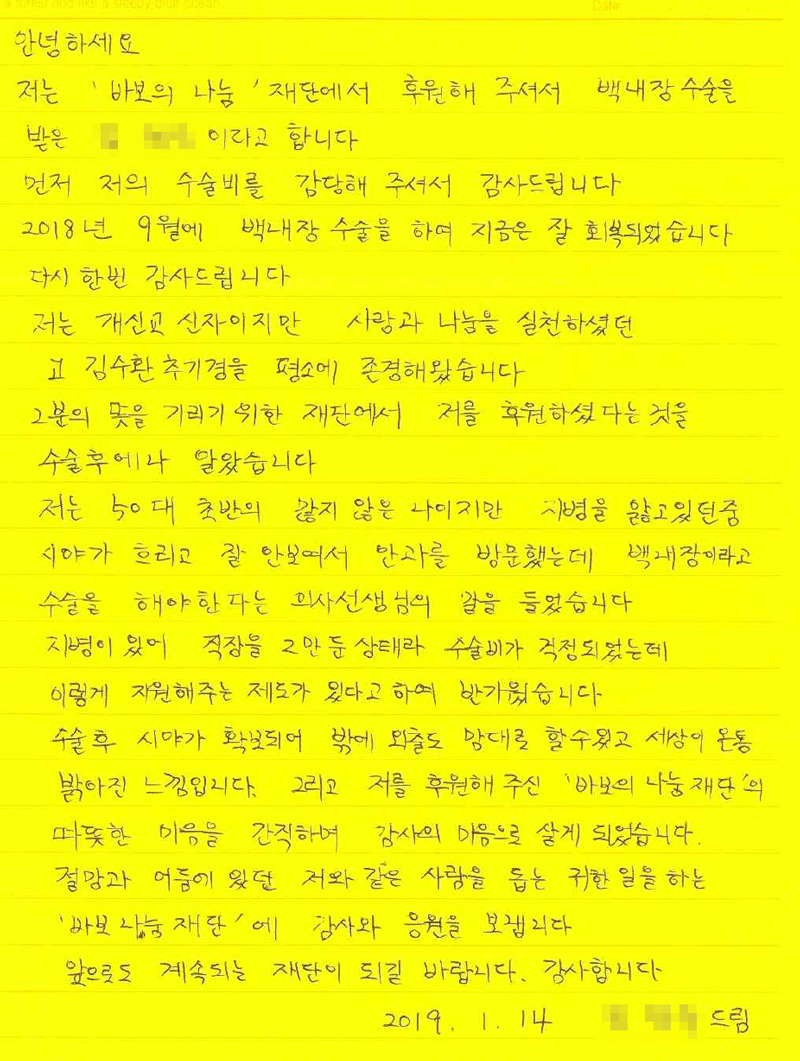 a forest and like a sleepy blue ocean...
Date:
안녕하세요
저는 '바보의 나눔' 재단에서 후원해 주셔서 백내장 수술을
받은 이라고 합니다
먼저 저의 수술비를 감당해 주셔서 감사드립니다
2018년 9월에 백내장 수술을 하여 지금은 잘 회복되었습니다
다시 한번 감사드립니다
저는 개신교 신자이지만 사랑과 나눔을 실천하셨던
고 김수환 추기경을 평소에 존경해왔습니다
그분의 뜻을 기리기 위한 재단에서 저를 후원하셨다는 것을
수술후에나 알았습니다
저는 50대 초반의 많지 않은 나이지만 지병을 앓고있던중
시야가 흐리고 잘 안보여서 안과를 방문했는데 백내장이라고
수술을 해야한다는 의사선생님의 말을 들었습니다
지병이 있어 직장을 그만 둔 상태라 수술비가 걱정되었는데
이렇게 지원해주는 제도가 있다고 하여 반가웠습니다
수술후 시야가 확보되어 밖에 외출도 맘대로 할수있고 세상이 온통
밝아진 느낌입니다. 그리고 저를 후원해 주신 '바보의 나눔 재단'의
따뜻한 마음을 간직하며 감사의 마음으로 살게 되었습니다.
절망과 어둠에 있던 저와 같은 사람을 돕는 귀한 일을 하는
'바보 나눔 재단'에 감사와 응원을 보냅니다
앞으로도 계속되는 재단이 되길 바랍니다. 감사합니다
2019. 1. 14 드림